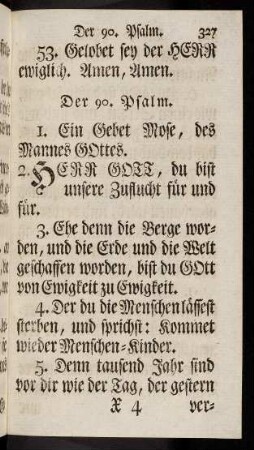 Der 90. Psalm. 327
53. Gelobet sey der HERR
ewiglich. Amen, Amen.
Der 90. Psalm.
1. Ein Gebet Mose, des
Mannes GOttes.
2. HERR GOTT, du bist
unsere Zuflucht für und
für.
3. Ehe denn die Berge wor-
den, und die Erde und die Welt
geschaffen worden, bist du GOtt
von Ewigkeit zu Ewigkeit.
4. Der du die Menschen lässest
sterben, und sprichst: Kommet
wieder Menschen-Kinder.
5. Denn tausend Jahr sind
vor dir wie der Tag, der gestern
X 4 ver-